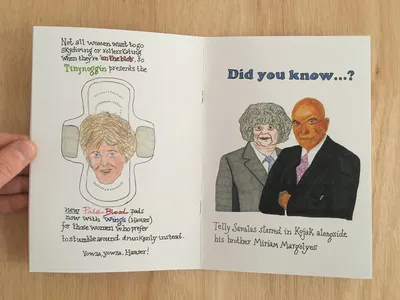 Not all women want to go
skydiving or rollerskating
when they're 'on the blob', so
Tinynoggin presents the
new Pale Blood pads
now with 'Wings' (Hauser)
for those women who prefer
to stumble around drunkenly instead.
Yowza, yowza, Hauser!
Did you know...?
Telly Savalas starred in Kojak alongside
his brother Miriam Margolyes